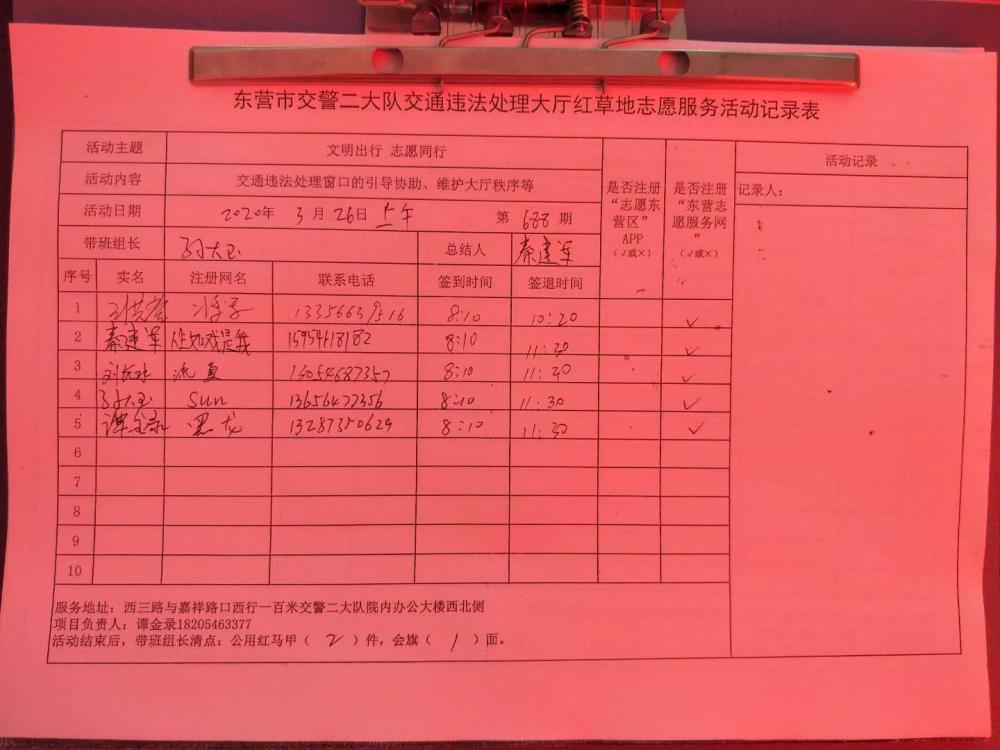 东营市交警二大队交通违法处理大厅红草地志愿服务活动记录表
活动主题 文明出行 志愿同行
活动内容 交通违法处理窗口的引导协助、维护大厅秩序等
活动日期 2020年 3月26日 上午 第 688 期
带班组长 孙大玉 总结人 秦建军
是否注册“志愿东营区”APP（√或×）
是否注册“东营志愿服务网”（√或×）
活动记录
记录人：
序号 实名 注册网名 联系电话 签到时间 签退时间
1 8:10 10:20 ✓
2 秦建军 15954618182 8:10 11:30 ✓
3 13054687357 8:10 11:30 ✓
4 孙大玉 Sun 13656477356 8:10 11:30 ✓
5 谭金录 黑龙 13287350629 8:10 11:30 ✓
6
7
8
9
10
服务地址：西三路与嘉祥路口西行一百米交警二大队院内办公大楼西北侧
项目负责人：谭金录18205463377
活动结束后，带班组长清点：公用红马甲（ 2 ）件，会旗（ 1 ）面。